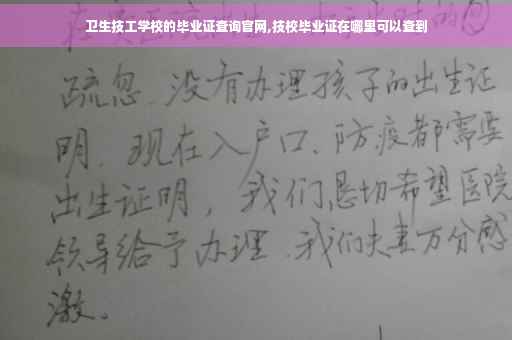 卫生技工学校的毕业证查询官网,技校毕业证在哪里可以查到
疏忽、没有办理孩子的出生证
明。现在入户口、防疫都需要
出生证明，我们恳切希望医院
领导给予办理、我们夫妻万分感
激。